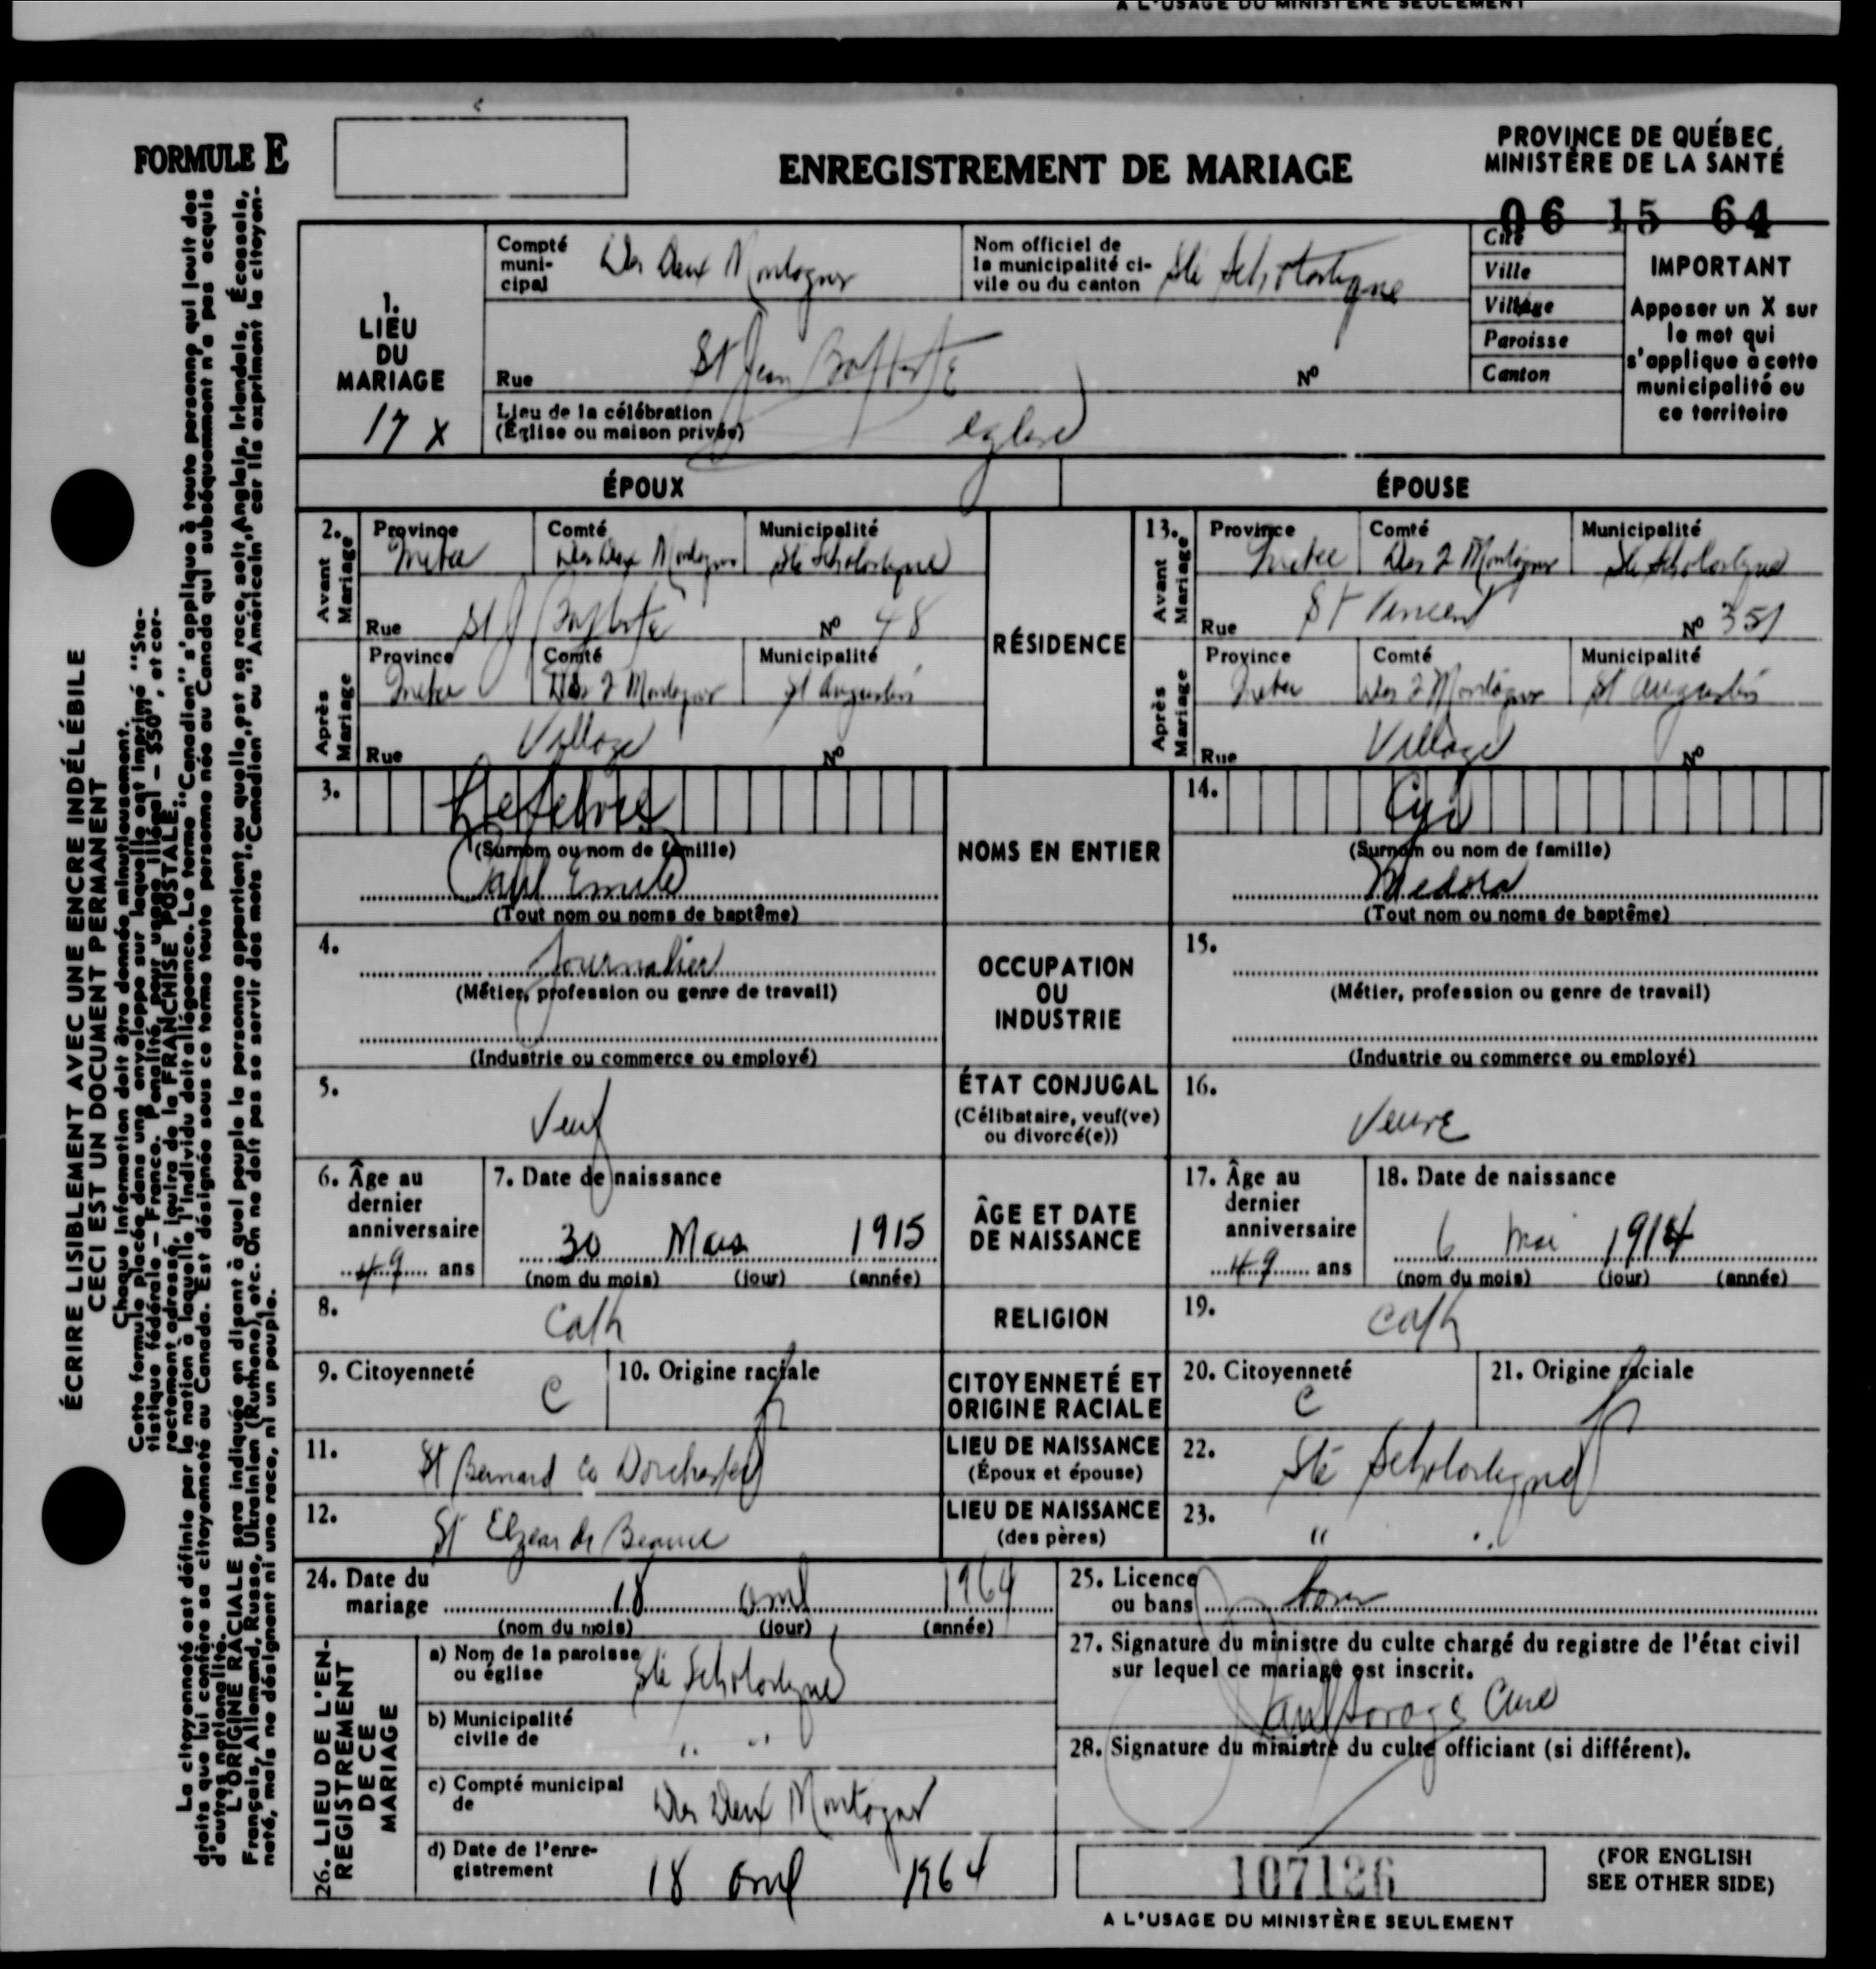 A L'USAGE DU MINISTÈRE SEULEMENT
FORMULE E
ENREGISTREMENT DE MARIAGE
PROVINCE DE QUÉBEC,
MINISTÈRE DE LA SANTÉ
06 15 64
ÉCRIRE LISIBLEMENT AVEC UNE ENCRE INDÉLÉBILE
CECI EST UN DOCUMENT PERMANENT
Chaque information doit être donnée minutieusement.
Cette formule placée dans une enveloppe sur laquelle est imprimé "Sta-
tistique fédérale – Franco. Pénalité pour usage illégal – $50", et cor-
rectement adressé, jouira de la FRANCHISE POSTALE.
La citoyenneté est définie par la nation à laquelle l'individu doit allégeance. Le terme "Canadien" s'applique à toute personne qui jouit des
droits que lui confère sa citoyenneté au Canada. Est désignée sous ce terme toute personne née au Canada qui subséquemment n'a pas acquis
d'autres nationalité.
L'ORIGINE RACIALE sera indiquée en disant à quel peuple la personne appartient ou quelle est sa race, soit Anglais, Irlandais, Écossais,
Français, Allemand, Russe, Ukrainien (Ruthène), etc. On ne doit pas se servir des mots "Canadien" ou "Américain" car ils expriment la citoyen-
neté, mais ne désignent ni une race, ni un peuple.
1.
LIEU
DU
MARIAGE
17 X
Compté
muni-
cipal
Des Deux Montagnes
Nom officiel de
la municipalité ci-
vile ou du canton
Ste Scholastique
Cité
Ville
Village
Paroisse
Canton
IMPORTANT
Apposer un X sur
le mot qui
s'applique à cette
municipalité ou
ce territoire
Rue St Jean Baptiste Nº
Lieu de la célébration
(Église ou maison privée) église
ÉPOUX ÉPOUSE
2. Avant Mariage
Province Comté Municipalité
Quebec Des Deux Montagnes Ste Scholastique
Rue St J Baptiste Nº 48
RÉSIDENCE
13. Avant Mariage
Province Comté Municipalité
Quebec Des 2 Montagnes Ste Scholastique
Rue St Vincent Nº 351
Après Mariage
Province Comté Municipalité
Quebec Des 2 Montagnes St Augustin
Rue Village Nº
Après Mariage
Province Comté Municipalité
Quebec Des 2 Montagnes St Augustin
Rue Village Nº
3. Lefebvre
(Surnom ou nom de famille)
Paul Emile
(Tout nom ou noms de baptême)
NOMS EN ENTIER
14. Cyr
(Surnom ou nom de famille)
Medora
(Tout nom ou noms de baptême)
4. Journalier
(Métier, profession ou genre de travail)
(Industrie ou commerce ou employé)
OCCUPATION
OU
INDUSTRIE
15.
(Métier, profession ou genre de travail)
(Industrie ou commerce ou employé)
5. Veuf
ÉTAT CONJUGAL
(Célibataire, veuf(ve)
ou divorcé(e))
16. Veuve
6. Âge au
dernier
anniversaire
49 ans
7. Date de naissance
30 Mars 1915
(nom du mois) (jour) (année)
ÂGE ET DATE
DE NAISSANCE
17. Âge au
dernier
anniversaire
49 ans
18. Date de naissance
6 mai 1914
(nom du mois) (jour) (année)
8. Cath
RELIGION
19. Cath
9. Citoyenneté C
10. Origine raciale fr
CITOYENNETÉ ET
ORIGINE RACIALE
20. Citoyenneté C
21. Origine raciale fr
11. St Bernard Co Dorchester
LIEU DE NAISSANCE
(Époux et épouse)
22. Ste Scholastique
12. St Elzear de Beauce
LIEU DE NAISSANCE
(des pères)
23. " "
24. Date du
mariage 18 avril 1964
(nom du mois) (jour) (année)
25. Licence
ou bans bans
26. LIEU DE L'EN-
REGISTREMENT
DE CE
MARIAGE
a) Nom de la paroisse
ou église Ste Scholastique
b) Municipalité
civile de " "
c) Compté municipal
de Des Deux Montagnes
d) Date de l'enre-
gistrement 18 avril 1964
27. Signature du ministre du culte chargé du registre de l'état civil
sur lequel ce mariage est inscrit.
Paul Curé
28. Signature du ministre du culte officiant (si différent).
107126
(FOR ENGLISH
SEE OTHER SIDE)
A L'USAGE DU MINISTÈRE SEULEMENT